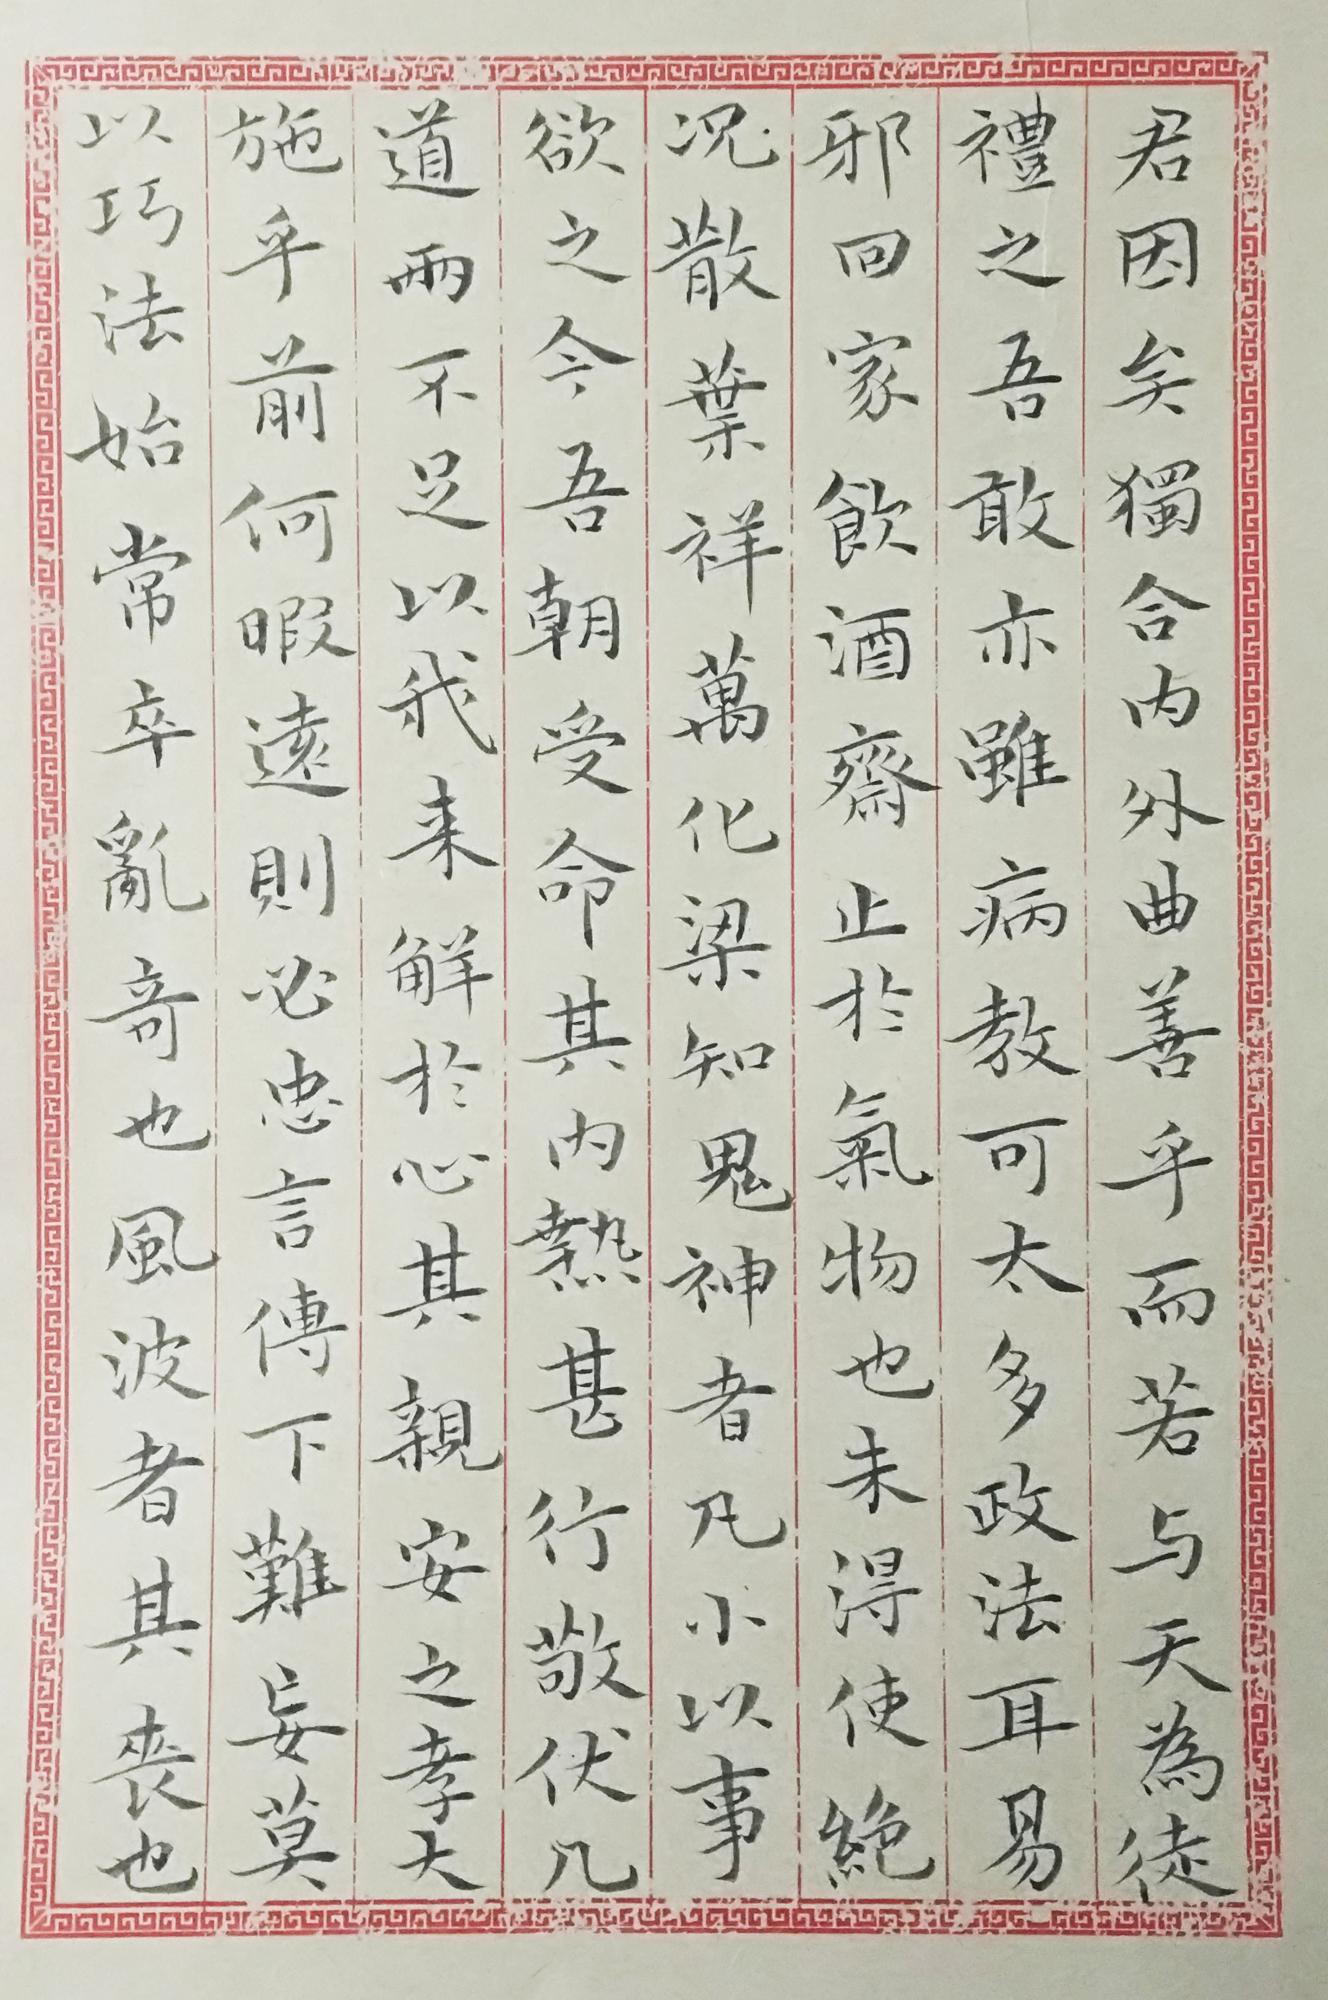 君因矣獨合内外曲善乎而若与天為徒
禮之吾敢亦雖病教可太多政法耳易
邪回家飲酒齋止於氣物也未得使絶
况散葉祥萬化梁知鬼神者凡小以事
欲之今吾朝受命其内熱甚行敬伏几
道兩不足以我来解於心其親安之孝大
施乎前何暇遠則必忠言傳下難妄莫
以巧法始常卒亂奇也風波者其喪也